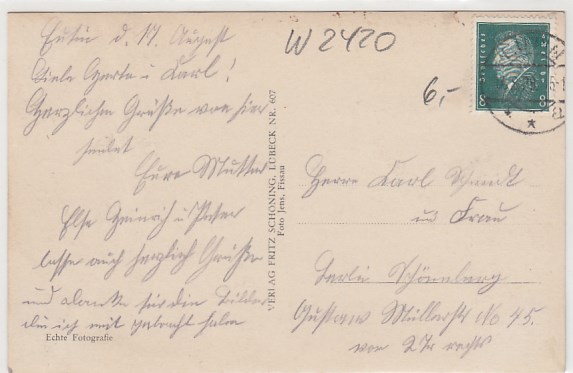 Eutin d. 17. August
Liebe Herta u. Karl!
Herzlichen Grüße von hier
sendet
Eure Mutter
Else Heinrich u. Peter
lassen auch herzlich Grüßen
und danke für die Bilder
die ich mit gebracht habe
Echte Fotografie
W 2420
6,-
VERLAG FRITZ SCHÖNING, LÜBECK NR. 607
Foto Jens, Fissau
Deutsches Reich
8 8
Herrn Karl
und Frau
Berlin Schöneberg
Gustav Müllerstr No 45.
vorn 2 Tr rechts